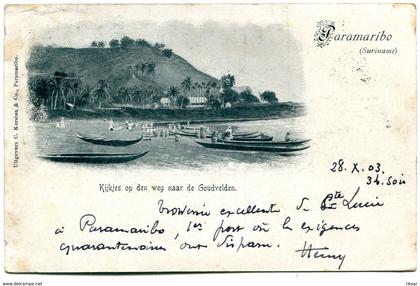 Paramaribo
(Suriname)
Uitgevers C. Kersten & Co., Paramaribo.
Kijkjes op den weg naar de Goudvelden.
28. X. 03
3h. Soir
Traversée excellente de Ste Lucie
à Paramaribo, 1er port où les exigences
quarantenaires ont disparu.
Henry